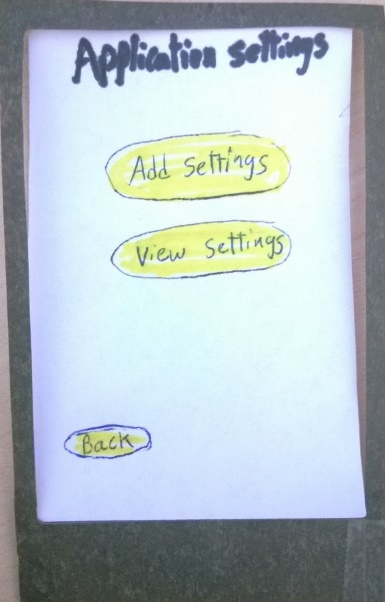 Application settings
Add settings
View settings
Back